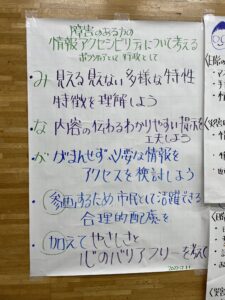 障害のある方の
情報アクセシビリティについて考える
ボランティアとして 行政として
・み 見える見えない多様な特性
特徴を理解しよう
な 内容の伝わるわかりやすい
工夫しよう
が がまんせず、必要な情報を
アクセスを検討しよう
・参画するため市民として活躍できる
合理的配慮を
・加えて やさしさと
心のバリアフリーを考えて